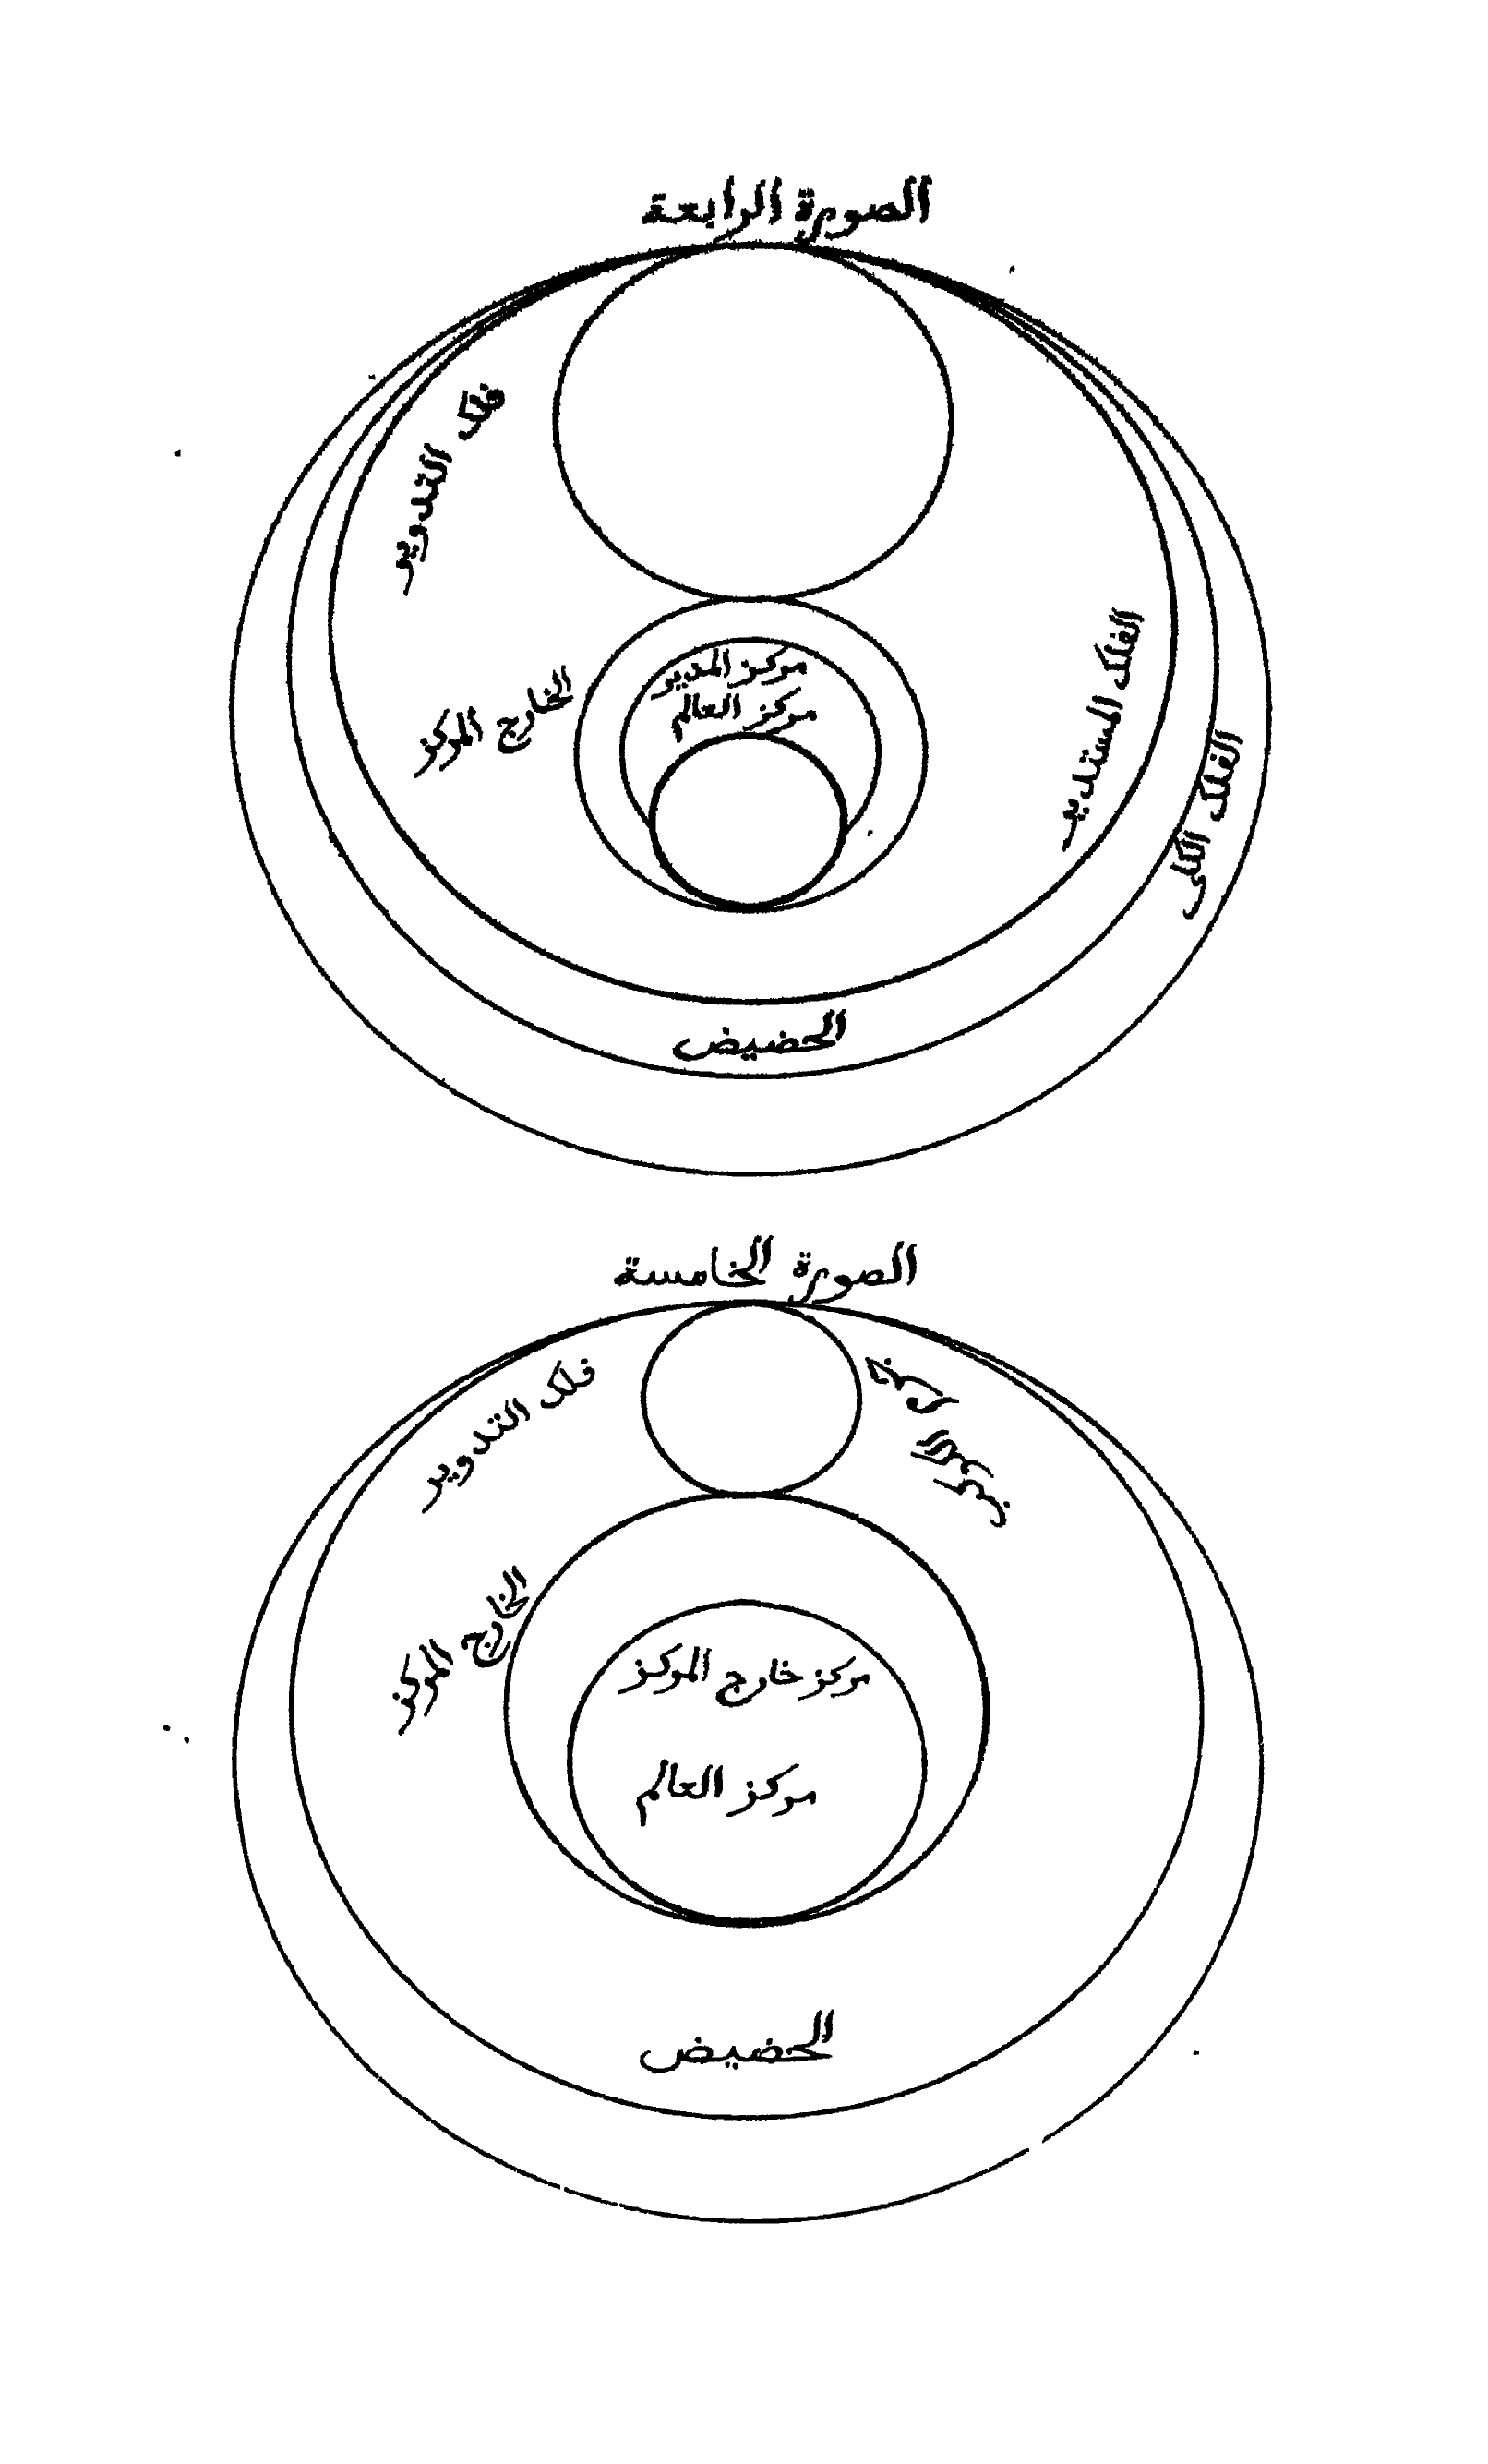 الصورة الرابعة
فلك التدوير
الخارج المركز
مركز المدير
مركز العالم
الفلك المستدير
الفلك الكلى
الحضيض
الصورة الخامسة
فلك التدوير
الخارج المركز
مركز خارج المركز
مركز العالم
الحضيض